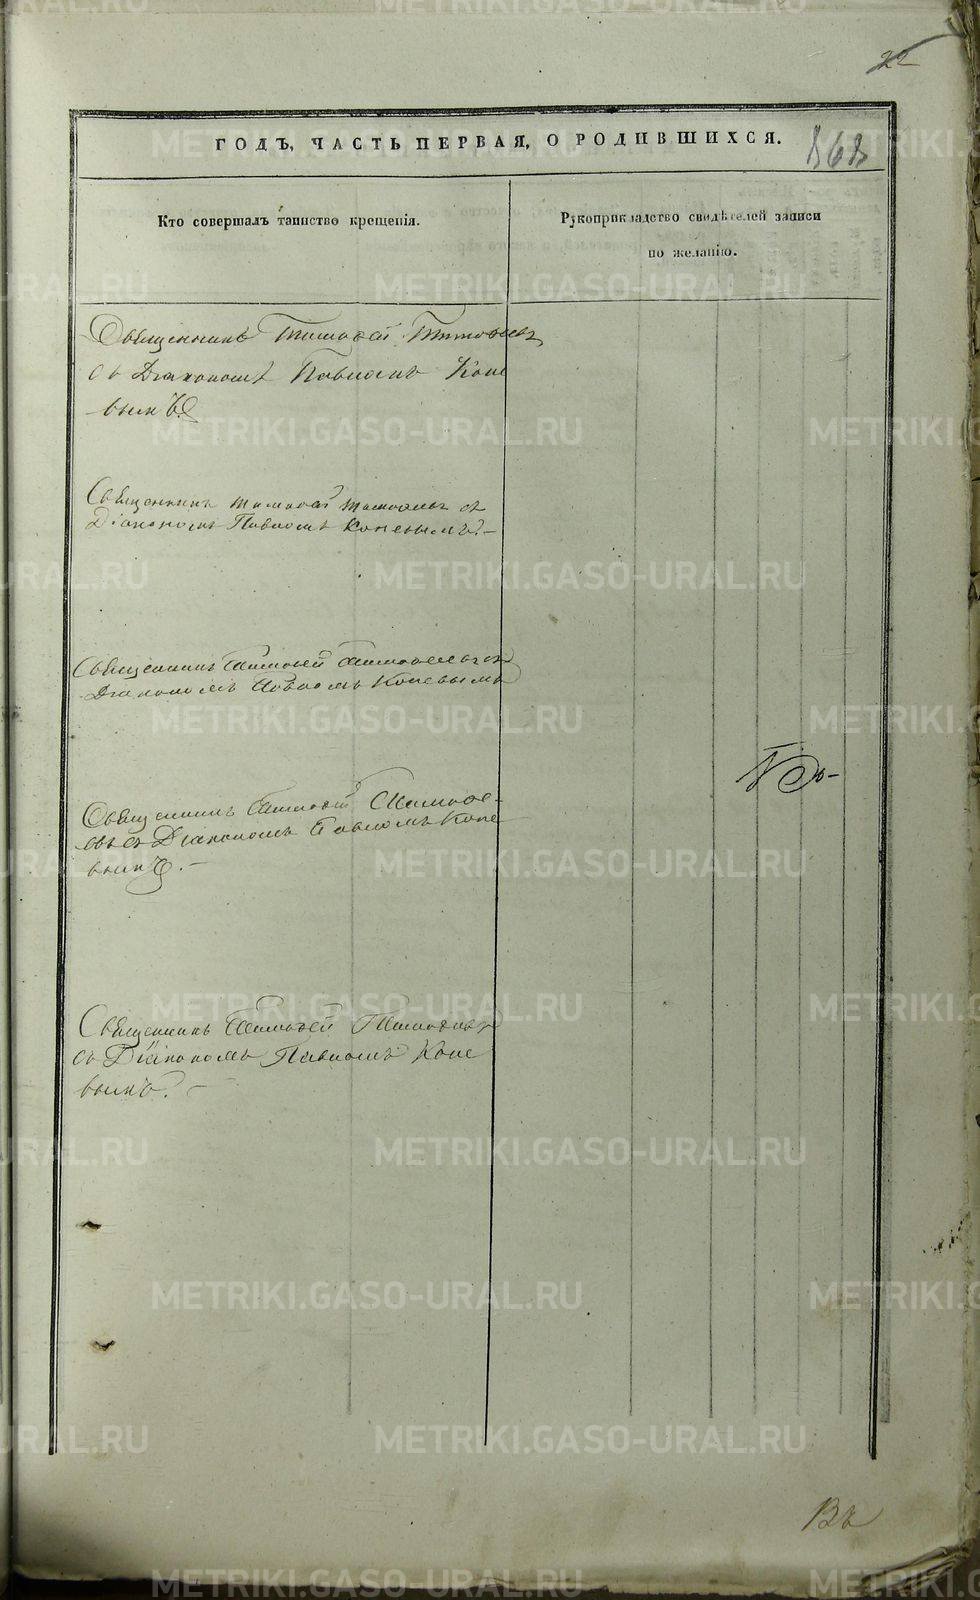 22
ГОДЪ, ЧАСТЬ ПЕРВАЯ, О РОДИВШИХСЯ.
Кто совершалъ таинство крещенія.
Рукоприкладство свидѣтелей записи
по желанію.
Священникъ Тимоѳей Тимоѳеевъ
съ Діакономъ Павломъ Коне
вымъ
Священникъ Тимоѳей Тимоѳеевъ съ
Діакономъ Павломъ Коневымъ. -
Священникъ Тимоѳей Тимоѳеевъ съ
Діакономъ Павломъ Коневымъ
Священникъ Тимоѳей Тимоѳе-
евъ съ Діакономъ Павломъ Коне
вымъ. -
Священникъ Тимоѳей Тимоѳеевъ
съ Діакономъ Павломъ Коне
вымъ. -
Въ
METRIKI.GASO-URAL.RU